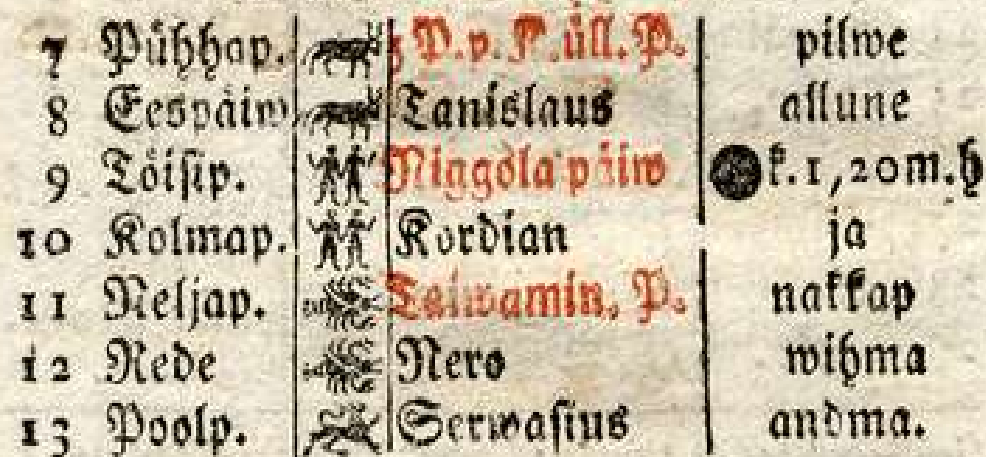 7 Pühhap. 5 P. p. P. üll. P. pilwe
8 Eespäiw Tanislaus allune
9 Töisip. Niggola päiw k. 1, 20 m. h
10 Kolmap. Kordian ja
11 Neljap. Taiwamin. P. nakkap
12 Rede Nero wihma
13 Poolp. Serwasius andma.